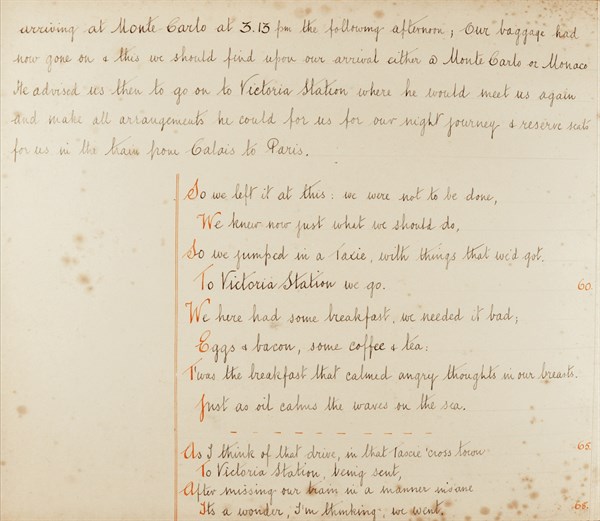 arriving at Monte Carlo at 3.13 pm the following afternoon; Our baggage had
now gone on & this we should find upon our arrival either @ Monte Carlo or Monaco
He advised us then to go on to Victoria Station where he would meet us again
and make all arrangements he could for us for our night journey & reserve seats
for us in the train from Calais to Paris.
So we left it at this: we were not to be done,
We knew now just what we should do,
So we jumped in a Taxie, with things that we'd got.
To Victoria Station we go. 60.
We here had some breakfast, we needed it bad;
Eggs & bacon, some coffee & tea:
T'was the breakfast that calmed angry thoughts in our breasts.
Just as oil calms the waves on the sea.
As I think of that drive, in that Taxie 'cross town 65.
To Victoria Station, being sent,
After missing our train in a manner insane
Its a wonder, I'm thinking, we went. 68.